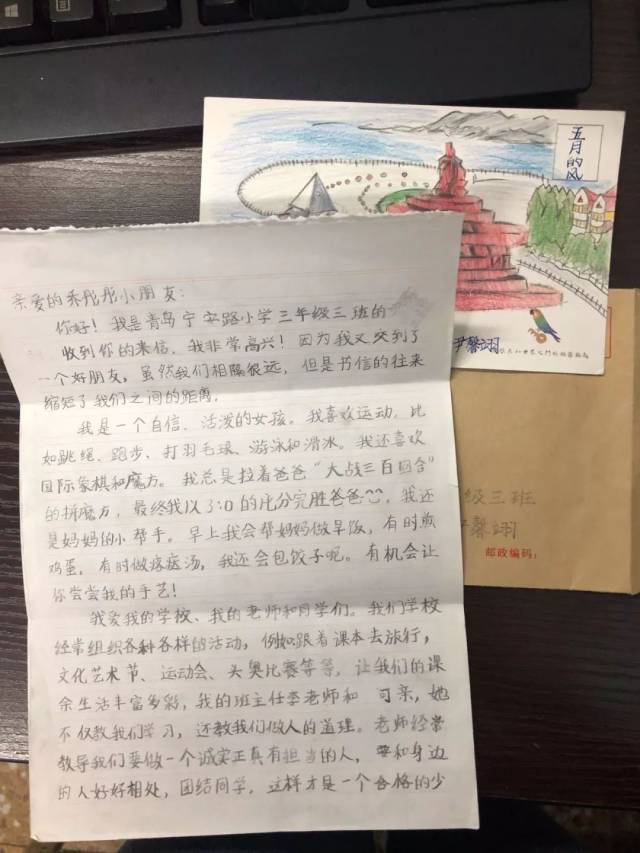 五月的风
尹馨翊
级三班
尹馨翊
邮政编码：
亲爱的乔彤彤小朋友：
你好！我是青岛宁安路小学三年级三班的
收到你的来信，我非常高兴！因为我又交到了
一个好朋友，虽然我们相隔很远，但是书信的往来
缩短了我们之间的距离。
我是一个自信、活泼的女孩。我喜欢运动，比
如跳绳、跑步、打羽毛球、游泳和滑冰。我还喜欢
国际象棋和魔方。我总是拉着爸爸“大战三百回合”
的拼魔方，最终我以3:0的比分完胜爸爸。我还
是妈妈的小帮手。早上我会帮妈妈做早饭，有时煎
鸡蛋，有时做疙瘩汤，我还会包饺子呢。有机会让
你尝尝我的手艺！
我爱我的学校、我的老师和同学们。我们学校
经常组织各种各样的活动，例如跟着课本去旅行，
文化艺术节、运动会、头奥比赛等等，让我们的课
余生活丰富多彩，我的班主任李老师和 可亲，她
不仅教我们学习，还教我们做人的道理。老师经常
教导我们要做一个诚实正真有担当的人，要和身边
的人好好相处，团结同学，这样才是一个合格的少